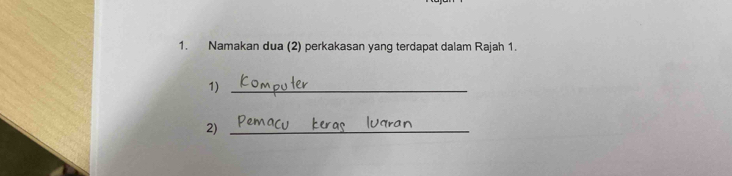 1. Namakan dua (2) perkakasan yang terdapat dalam Rajah 1.
1) Komputer
2) Pemacu keras luaran